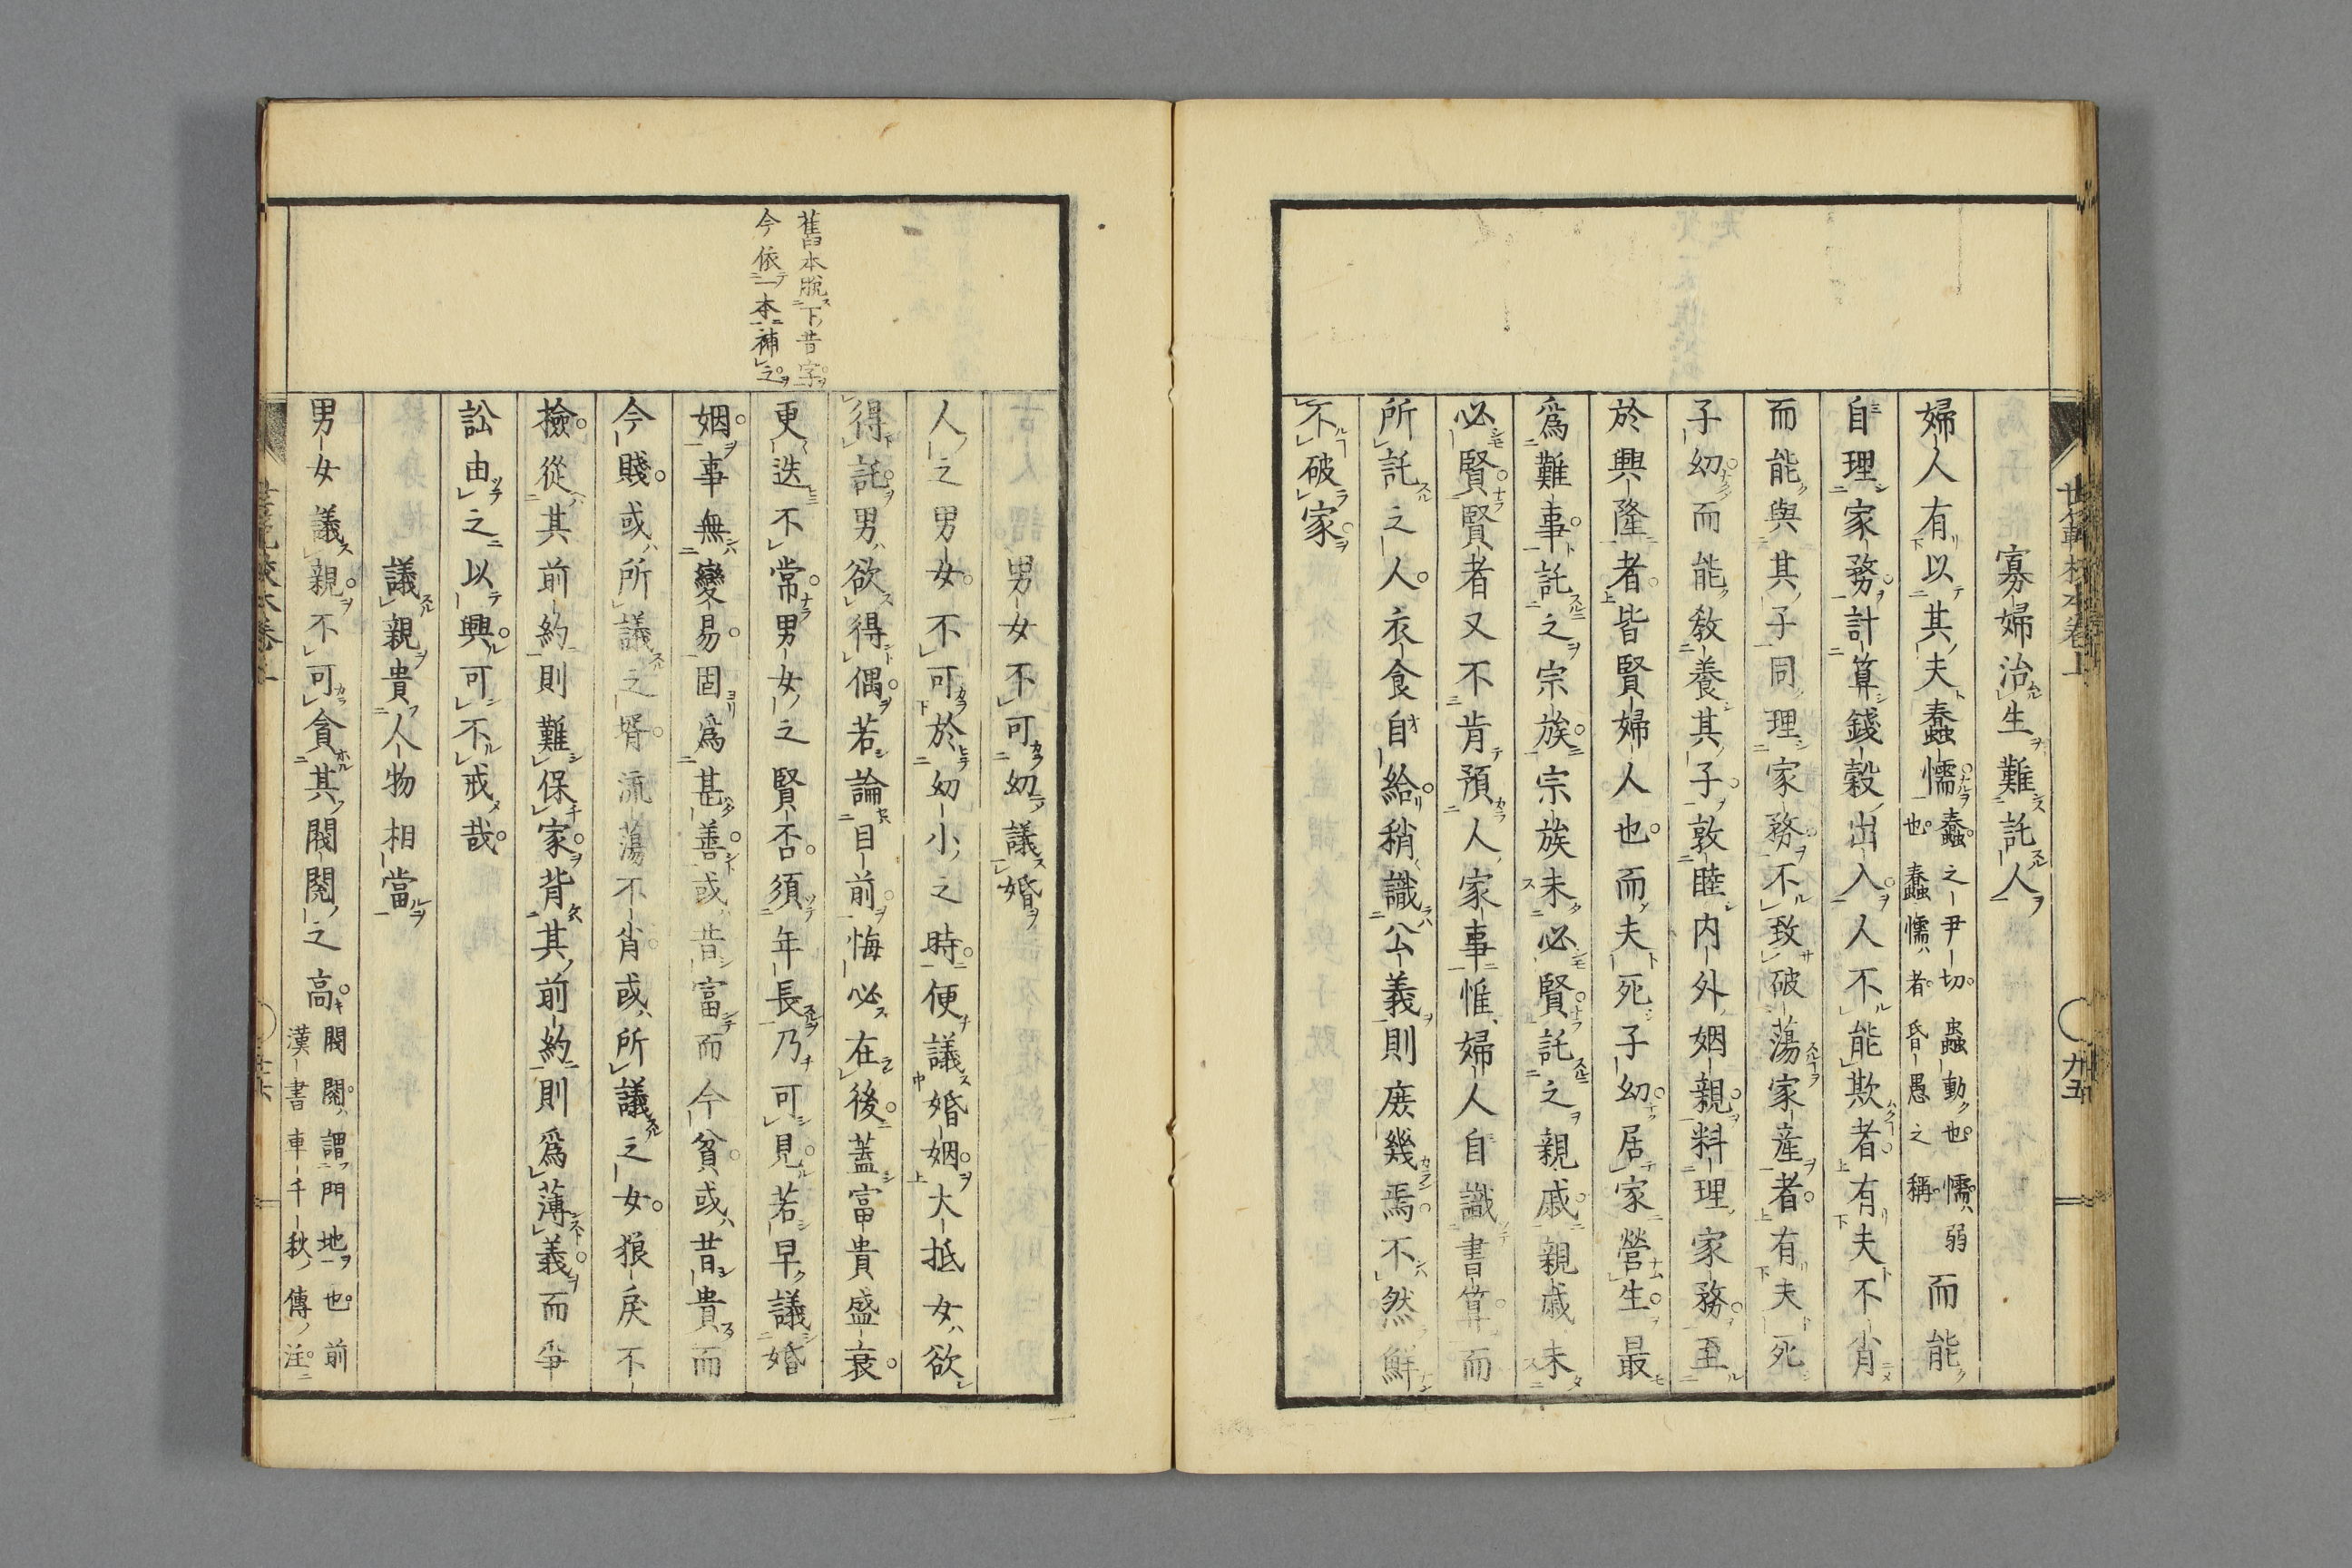 世範校本卷上
寡婦治生難託人
婦人有以其夫蠢懦蠢之尹切蟲動也懦弱也蠢懦者昏愚之稱而能
自理家務計算錢穀出入人不能欺者有夫不肖
而能與其子同理家務不致破蕩家產者有夫死
子幼而能敎養其子敦睦內外姻親料理家務至
於興隆者皆賢婦人也而夫死子幼居家營生最
爲難事託之宗族宗族未必賢託之親戚親戚未
必賢賢者又不肯預人家事惟婦人自識書算而
所託之人衣食自給稍識公義則庶幾焉不然鮮
不破家
舊本脫下昔字
今依一本補之
男女不可幼議婚
人之男女不可於幼小之時便議婚姻大抵女欲
得託男欲得偶若論目前悔必在後蓋富貴盛衰
更迭不常男女之賢否須年長乃可見若早議婚
姻事無變易固爲甚善或昔富而今貧或昔貴而
今賤或所議之壻流蕩不肖或所議之女狼戾不
檢從其前約則難保家背其前約則爲薄義而爭
訟由之以興可不戒哉
議親貴人物相當
男女議親不可貪其閥閱之高閥閱謂門地也前漢書車千秋傳注